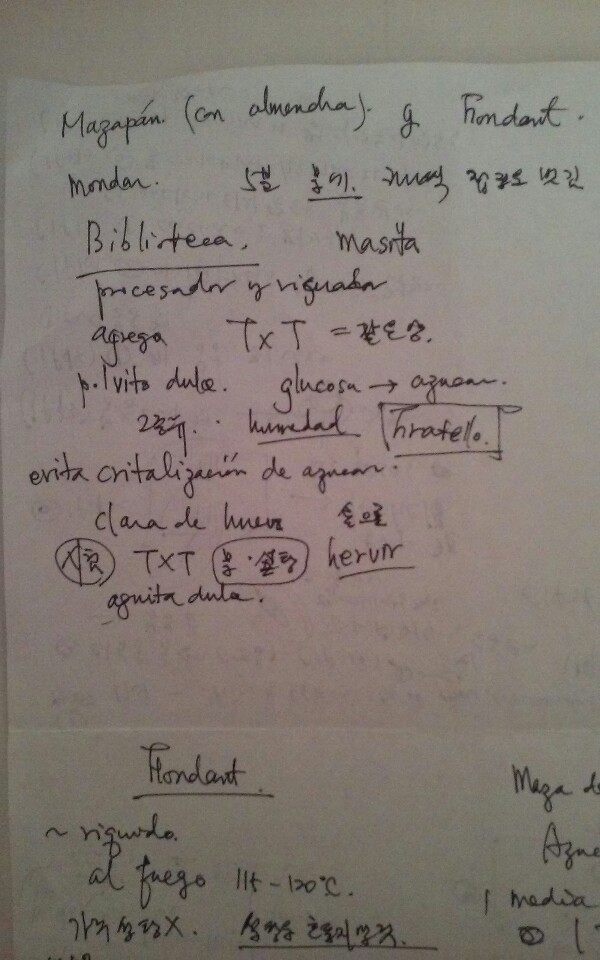 Mazapán. (con almendra). y Fondant.
mondar. 5분 불기. 껍질 벗김
Biblioteca. masita
procesador y riguador
agrega TxT = 같은양.
polvito dulce. glucosa → azucar.
2종류. humedad Fratello.
evita critalización de azucar.
clara de huevo 손으로
시험 TXT 물·설탕 hervir
aguita dulce.
Fondant. Maza de
~ riguido. Azuc
al fuego 115-120°C. 1 media
가루설탕X.